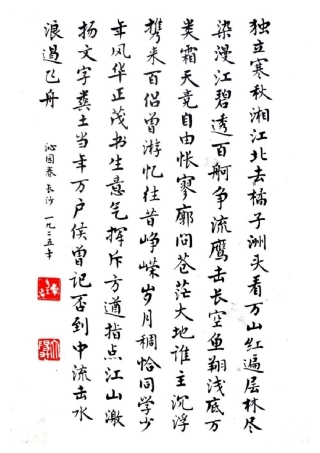 独立寒秋湘江北去橘子洲头看万山红遍层林尽
染漫江碧透百舸争流鹰击长空鱼翔浅底万
类霜天竞自由怅寥廓问苍茫大地谁主沉浮
携来百侣曾游忆往昔峥嵘岁月稠恰同学少
年风华正茂书生意气挥斥方遒指点江山激
扬文字粪土当年万户侯曾记否到中流击水
浪遏飞舟
沁园春长沙一九二五年